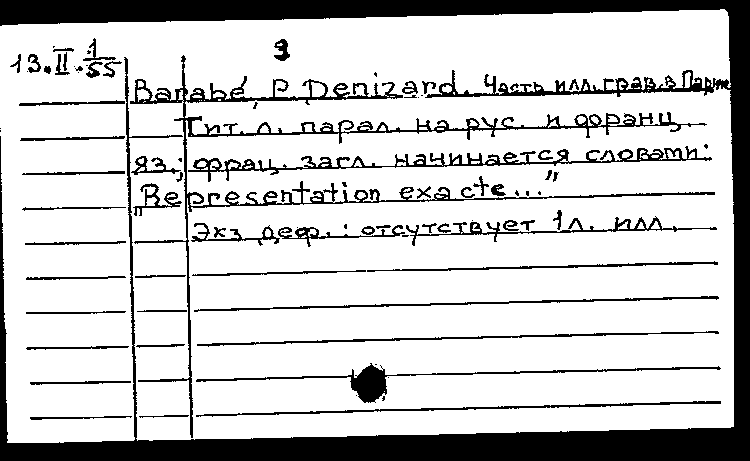 3
13.II.1/55
Barabé, P. Denizard. Часть илл. грав. в Париже
Тит. л. парал. на рус. и франц.
яз.; франц. загл. начинается словами:
„Representation exacte..."
Экз. деф.: отсутствует 1 л. илл.